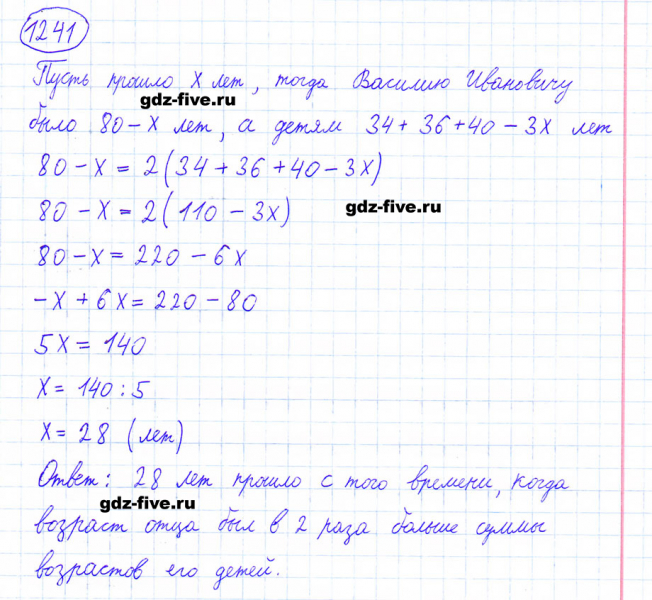 1241
Пусть прошло х лет, тогда Василию Ивановичу
gdz-five.ru
было 80 - х лет, а детям 34 + 36 + 40 - 3х лет
80 - х = 2(34 + 36 + 40 - 3х)
80 - х = 2(110 - 3х)
gdz-five.ru
80 - х = 220 - 6х
-х + 6х = 220 - 80
5х = 140
х = 140 : 5
х = 28 (лет)
Ответ: 28 лет прошло с того времени, когда
gdz-five.ru
возраст отца был в 2 раза больше суммы
возрастов его детей.